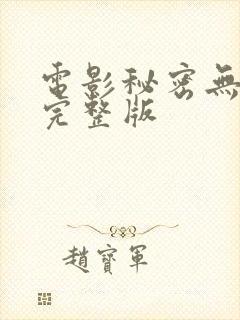 電影秘密無
完整版
趙寶軍